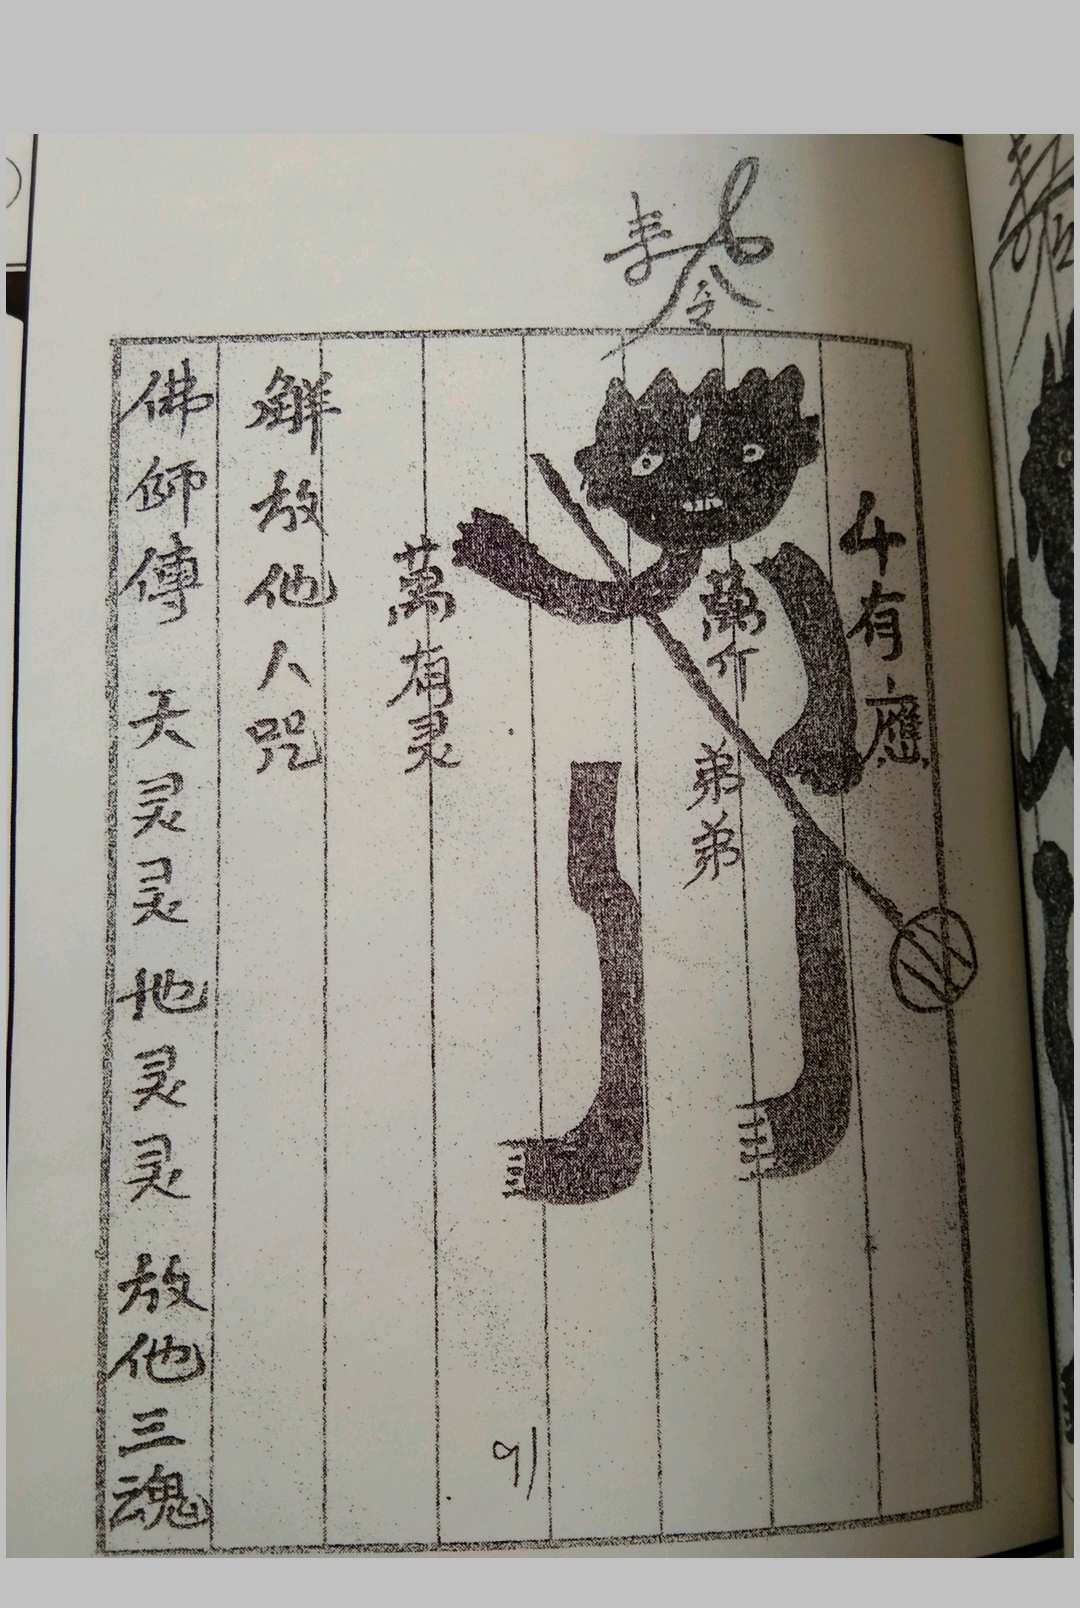 令
斗有應
萬
弟弟
萬有灵
解放他人咒
佛師傳 天灵灵 地灵灵 放他三魂
91